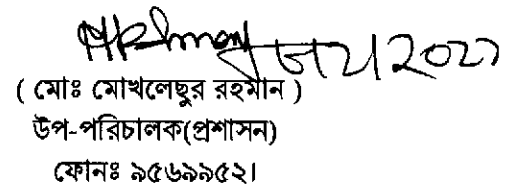 ( মোঃ মোখলেছুর রহমান )
উপ-পরিচালক(প্রশাসন)
ফোনঃ ৯৫৬৯৯৫২।